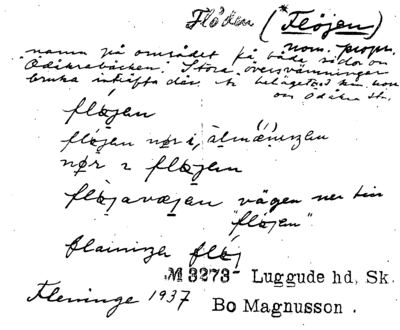 Flöden (*Flöjen)
nom. propr.
namn på området på båda sidor om
Ödåkrabäcken. Stora översvämningar
bruka inträffa där.
om Ödåkra st.
fløjen
fløjen nør i, àlmæniŋen
nør i fløjen
fløjavæjen vägen ner till
"fløjen"
flainiŋa fløj
M 3273- Luggude hd, Sk.
Fleninge 1937 Bo Magnusson.